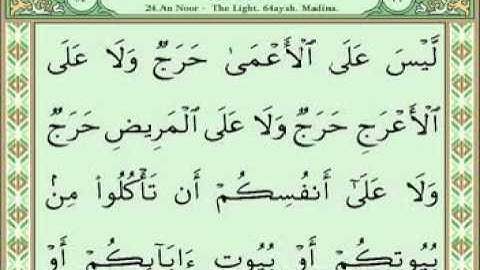 24.An Noor - The Light. 64ayah. Madina.
لَّيْسَ عَلَى ٱلْأَعْمَىٰ حَرَجٌ وَلَا عَلَى
ٱلْأَعْرَجِ حَرَجٌ وَلَا عَلَى ٱلْمَرِيضِ حَرَجٌ
وَلَا عَلَىٰٓ أَنفُسِكُمْ أَن تَأْكُلُوا۟ مِنۢ
بُيُوتِكُمْ أَوْ بُيُوتِ ءَابَآئِكُمْ أَوْ